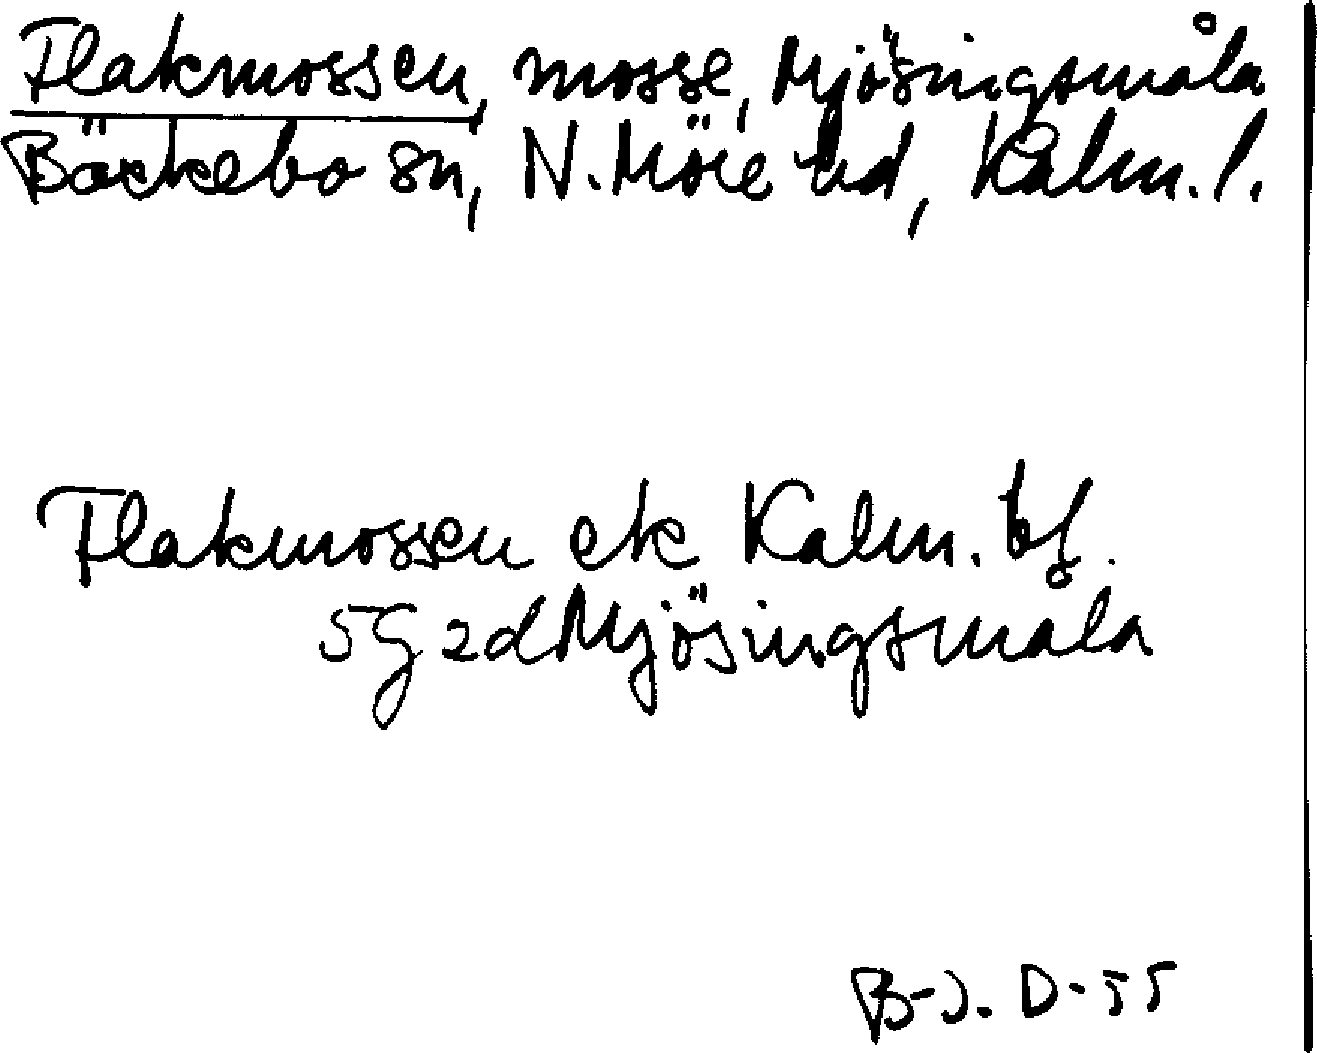 Flakmossen, mosse, Mjösingsmåla
Bäckebo sn, N. Möre hd, Kalm. l.
Flakmossen ek Kalm. bf.
5G 2d Mjösingsmåla
B-J. D-55